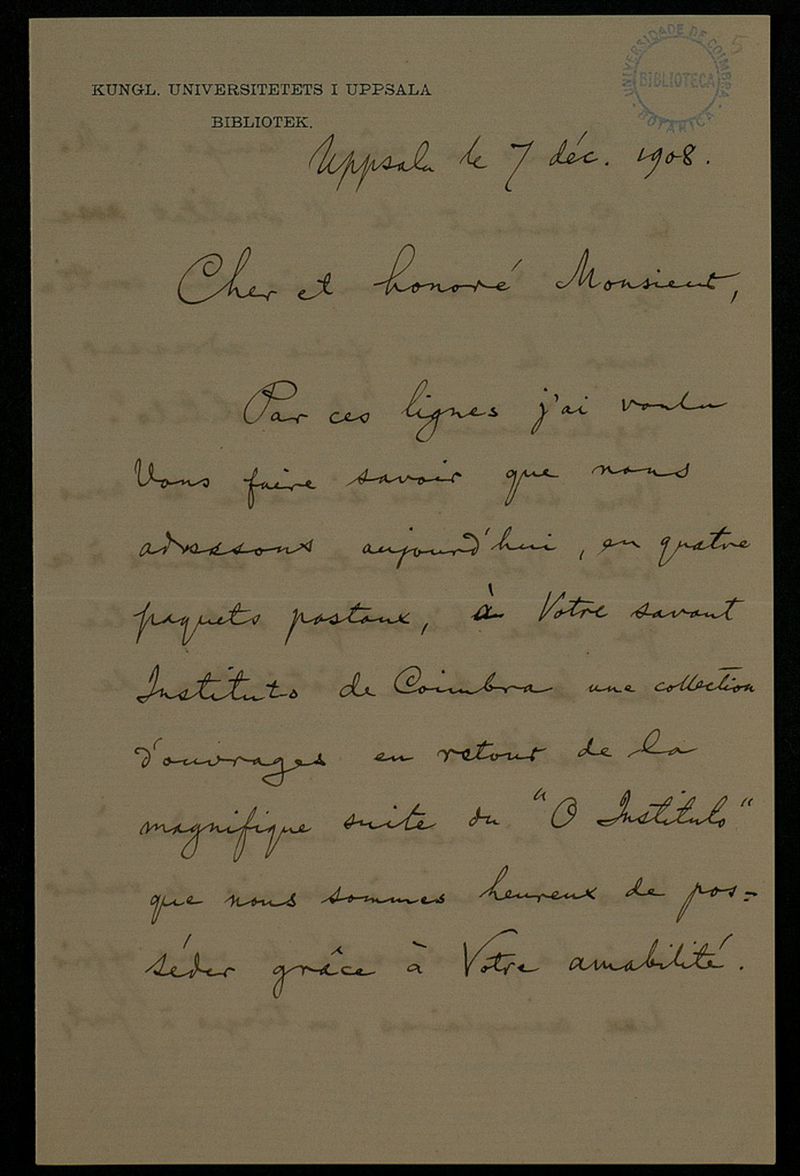 5
UNIVERSIDADE DE COIMBRA
BIBLIOTECA
BOTANICA
KUNGL. UNIVERSITETETS I UPPSALA
BIBLIOTEK.
Uppsala le 7 déc. 1908.
Cher et honoré Monsieur,
Par ces lignes j'ai voulu
Vous faire savoir que nous
adressons aujourd'hui, en quatre
paquets postaux, à Votre savant
Instituto de Coimbra une collection
d'ouvrages en retour de la
magnifique suite du "O Instituto"
que nous sommes heureux de pos-
séder grâce à Votre amabilité.